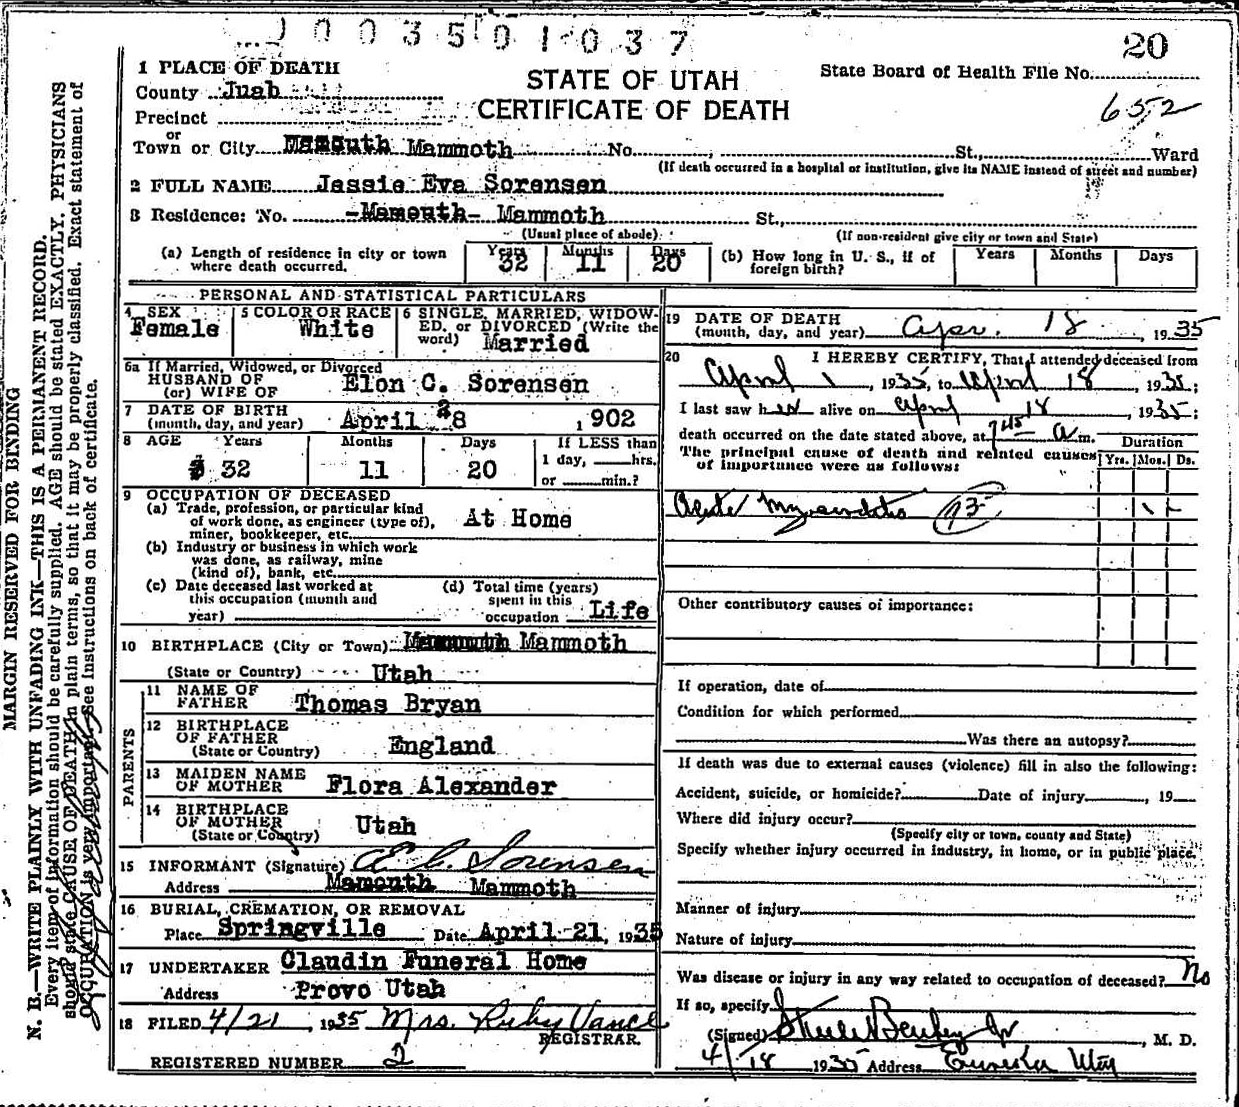 003501037
20
1 PLACE OF DEATH
STATE OF UTAH
State Board of Health File No.
County Juab
CERTIFICATE OF DEATH
652
Precinct
or
Town or City Mammoth No. St., Ward
(If death occurred in a hospital or institution, give its NAME instead of street and number)
2 FULL NAME Jessie Eva Sorensen
3 Residence: No. -Mamouth- Mammoth St.,
(Usual place of abode)
(If non-resident give city or town and State)
(a) Length of residence in city or town where death occurred. Years 32 Months 11 Days 20
(b) How long in U. S., if of foreign birth? Years Months Days
PERSONAL AND STATISTICAL PARTICULARS
4 SEX Female
5 COLOR OR RACE White
6 SINGLE, MARRIED, WIDOW-
ED, or DIVORCED (Write the
word) Married
6a If Married, Widowed, or Divorced
HUSBAND OF
(or) WIFE OF Elon C. Sorensen
7 DATE OF BIRTH
(month, day, and year) April 28 1902
8 AGE Years 32 Months 11 Days 20 If LESS than
1 day, hrs.
or min.?
9 OCCUPATION OF DECEASED
(a) Trade, profession, or particular kind
of work done, as engineer (type of),
miner, bookkeeper, etc. At Home
(b) Industry or business in which work
was done, as railway, mine
(kind of), bank, etc.
(c) Date deceased last worked at
this occupation (month and
year)
(d) Total time (years)
spent in this
occupation Life
10 BIRTHPLACE (City or Town) Mammoth
(State or Country) Utah
PARENTS
11 NAME OF
FATHER Thomas Bryan
12 BIRTHPLACE
OF FATHER
(State or Country) England
13 MAIDEN NAME
OF MOTHER Flora Alexander
14 BIRTHPLACE
OF MOTHER
(State or Country) Utah
15 INFORMANT (Signature) E C. Sorensen
Address Mamouth Mammoth
16 BURIAL, CREMATION, OR REMOVAL
Place Springville Date April 21, 1935
17 UNDERTAKER Claudin Funeral Home
Address Provo Utah
18 FILED 4/21 1935 Mrs. Ruby Vance
REGISTRAR.
REGISTERED NUMBER 2
19 DATE OF DEATH
(month, day, and year) Apr. 18, 1935
20 I HEREBY CERTIFY, That I attended deceased from
April 1, 1935, to April 18, 1935;
I last saw her alive on April 18, 1935;
death occurred on the date stated above, at 7 45 a m.
The principal cause of death and related causes
of importance were as follows:
Duration
Yrs. Mos. Ds.
Acute Myocarditis 93
Other contributory causes of importance:
If operation, date of
Condition for which performed
Was there an autopsy?
If death was due to external causes (violence) fill in also the following:
Accident, suicide, or homicide? Date of injury, 19
Where did injury occur?
(Specify city or town, county and State)
Specify whether injury occurred in industry, in home, or in public place.
Manner of injury
Nature of injury
Was disease or injury in any way related to occupation of deceased? No
If so, specify
(Signed) Steele Bailey Jr, M. D.
4/18 1935 Address Eureka Utah
MARGIN RESERVED FOR BINDING
N. B.—WRITE PLAINLY WITH UNFADING INK—THIS IS A PERMANENT RECORD.
Every item of information should be carefully supplied. AGE should be stated EXACTLY. PHYSICIANS
should state CAUSE OF DEATH in plain terms, so that it may be properly classified. Exact statement of
OCCUPATION is very important. See instructions on back of certificate.